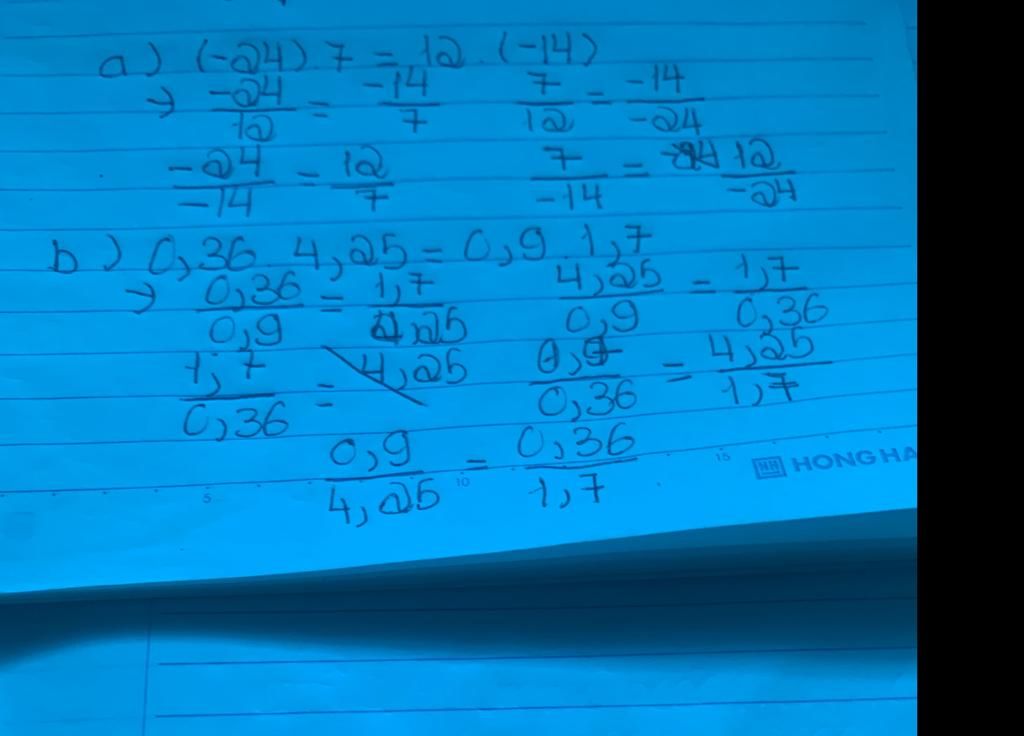 a) (-24) 7 = 12 . (-14)
→ -24/12 = -14/7 7/12 = -14/-24
-24/-14 = 12/7 7/-14 = 12/-24
b) 0,36 4,25 = 0,9 . 1,7
→ 0,36/0,9 = 1,7/4,25 4,25/0,9 = 1,7/0,36
1,7/0,36 = 4,25 0,9/0,36 = 4,25/1,7
0,9/4,25 = 0,36/1,7
5 10 15 HH HONG HA